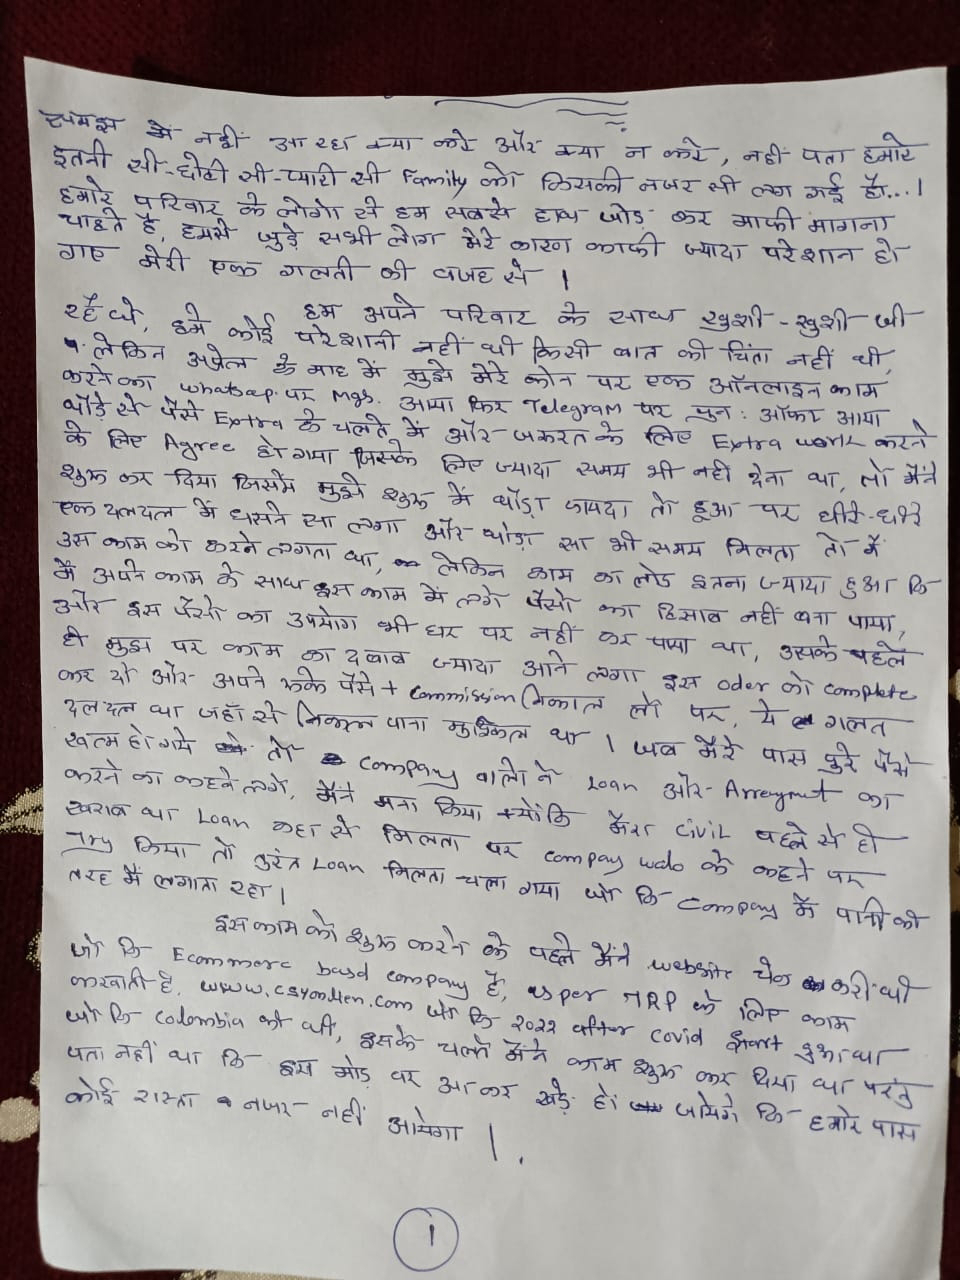 समझ में नहीं आ रहा क्या करे और क्या न करे, नहीं पता हमारे
इतनी सी-छोटी सी-प्यारी सी Family को किसकी नजर सी लग गई है...।
हमारे परिवार के लोगो से हम सबसे हाथ जोड़ कर माफी मागना
चाहते है, हमसे जुड़े सभी लोग मेरे कारण काफी ज्यादा परेशान हो
गए मेरी एक गलती की वजह से ।
हम अपने परिवार के साथ खुशी-खुशी जी
रहे थे, हमे कोई परेशानी नहीं थी किसी बात की चिंता नहीं थी,
लेकिन अप्रेल के माह में मुझे मेरे फोन पर एक ऑनलाइन काम
करने का whatsap. पर Mgs. आया फिर Telegram पर पुन: ऑफर आया
थोड़े से पैसे Extra के चलते में और जरूरत के लिए Extra work करने
के लिए Agree हो गया जिसके लिए ज्यादा समय भी नही देना था, तो मैंने
शुरू कर दिया जिसमें मुझे शुरू में थोड़ा फायदा तो हुआ पर धीरे-धीरे
एक दलदल में धसने सा लगा और थोड़ा सा भी समय मिलता तो मैं
उस काम को करने लगता था, लेकिन काम का लोड इतना ज्यादा हुआ कि
मैं अपने काम के साथ इस काम में लगे पैसो का हिसाब नहीं बना पाया,
और इस पैसो का उपयोग भी घर पर नहीं कर पाया था, उसके पहले
ही मुझ पर काम का दबाव ज्यादा आने लगा इस oder को complete
कर दो और अपने रुके पैसे + commission निकाल लो पर, ये गलत
दलदल था जहाँ से निकल पाना मुश्किल था । जब मेरे पास पुरे पैसे
खत्म हो गये तो company वालो ने Loan और Arreymnt का
करने का कहने लगे, मैंने मना किया क्योंकि मेरा Civil पहले से ही
खराब था Loan कहा से मिलता पर compay walo के कहने पर
Try किया तो तुरंत Loan मिलता चला गया जो कि company में पानी की
तरह मैं लगाता रहा ।
इस काम को शुरू करने के पहले मैंने website चेक करी थी
जो कि Ecommerc based company है, as per TRP के लिए काम
करवाती है. www.csyonllen.com जो कि 2022 after covid start हुआ था
जो कि Colombia की थी, इसके चलते मैंने काम शुरू कर दिया था परंतु
पता नहीं था कि इस मोड़ पर आ कर खड़े हो जायेंगे कि हमारे पास
कोई रास्ता नजर नहीं आयेगा ।
1